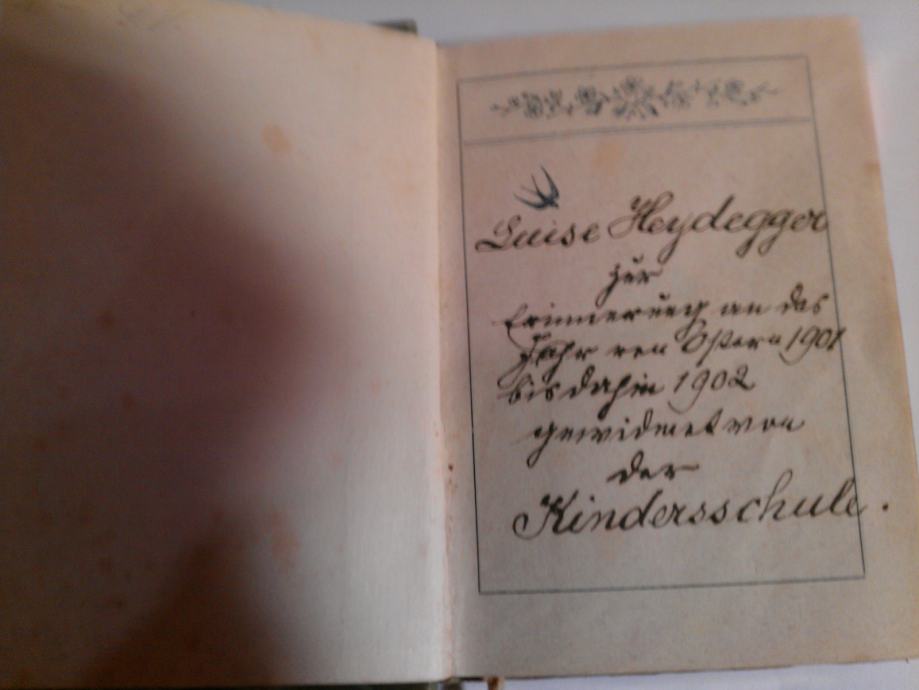 Luise Heydegger
zur
Erinnerung an das
Jahr von Ostern 1901
bis dahin 1902
gewidmet von
der
Kindersschule.